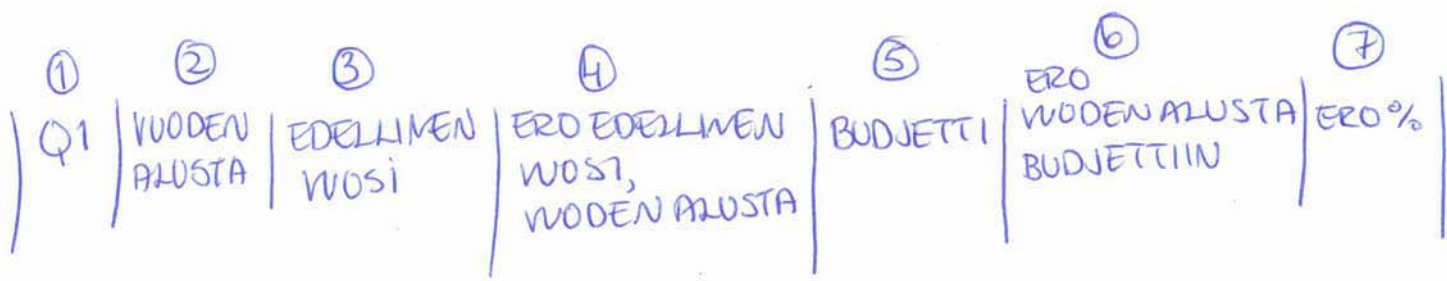 ① ② ③ ④ ⑤ ⑥ ⑦
Q1
VUODEN
ALUSTA
EDELLINEN
VUOSI
ERO EDELLINEN
VUOSI,
VUODEN ALUSTA
BUDJETTI
ERO
VUODEN ALUSTA
BUDJETTIIN
ERO %